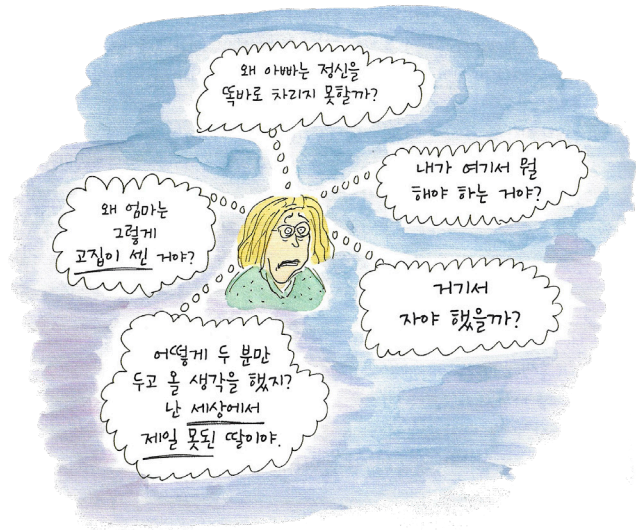 왜 아빠는 정신을
똑바로 차리지 못할까?
내가 여기서 뭘
해야 하는 거야?
왜 엄마는
그렇게
고집이 센 거야?
거기서
자야 했을까?
어떻게 두 분만
두고 올 생각을 했지?
난 세상에서
제일 못된 딸이야.